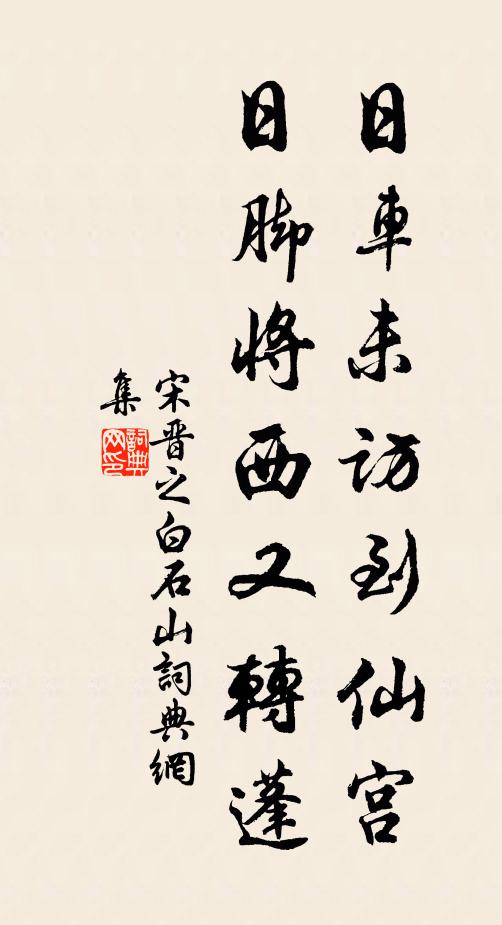 日車未訪到仙宮
日脚將西又轉蓬
宋晋之白石山詞典網
集
詞典网印